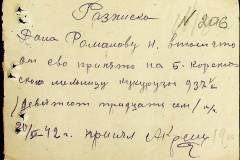 Розписка
N 206
Дана Романову н. в том что
от ево принято на Б.
мельницу кукурузы 937 к/г
/девятсот тридцать сем/ к/г
20/X-42 г. принял